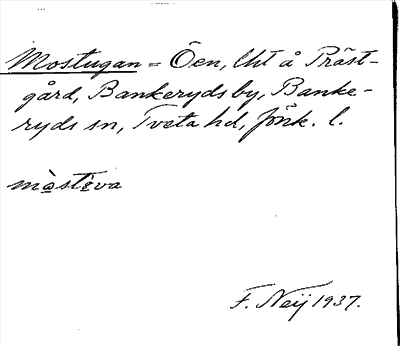 Mostugan = Öen, lht å Präst-
gård, Bankeryds by, Banke-
ryds sn, Tveta hd, Jönk. l.
mòstèva
F. Neij 1937.